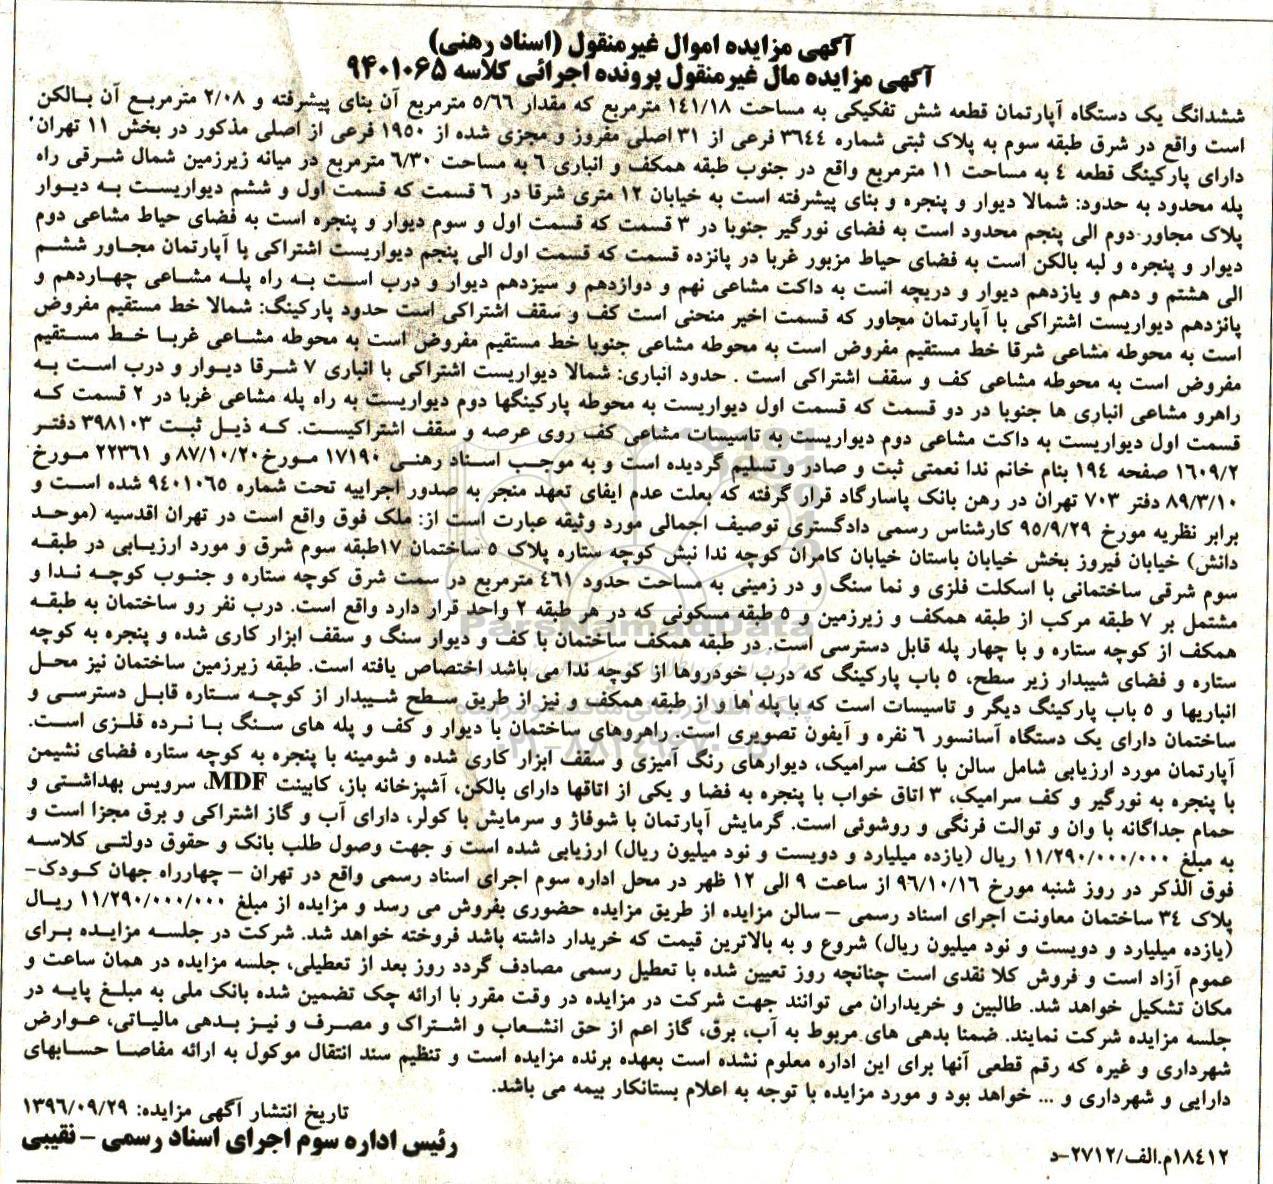 آگهی مزایده اموال غیرمنقول (اسناد رهنی)
آگهی مزایده مال غیرمنقول پرونده اجرائی کلاسه ۹۴۰۱۰۶۵
ششدانگ یک دستگاه آپارتمان قطعه شش تفکیکی به مساحت ۱۴۱/۱۸ مترمربع که مقدار ۵/۶۶ مترمربع آن بنای پیشرفته و ۲/۰۸ مترمربع آن بالکن
است واقع در شرق طبقه سوم به پلاک ثبتی شماره ۳۶۴۴ فرعی از ۳۱ اصلی مفروز و مجزی شده از ۱۹۵۰ فرعی از اصلی مذکور در بخش ۱۱ تهران
دارای پارکینگ قطعه ٤ به مساحت ۱۱ مترمربع واقع در جنوب طبقه همکف و انباری ۶ به مساحت ۶/۳۰ مترمربع در میانه زیرزمین شمال شرقی راه
پله محدود به حدود: شمالا دیوار و پنجره و بنای پیشرفته است به خیابان ۱۲ متری شرقا در ۶ قسمت که قسمت اول و ششم دیواریست به دیوار
پلاک مجاور دوم الی پنجم محدود است به فضای نورگیر جنوبا در ۳ قسمت که قسمت اول و سوم دیوار و پنجره است به فضای حیاط مشاعی دوم
دیوار و پنجره و لبه بالکن است به فضای حیاط مزبور غربا در پانزده قسمت که قسمت اول الی پنجم دیواریست اشتراکی با آپارتمان مجاور ششم
الی هشتم و دهم و یازدهم دیوار و دریچه است به داکت مشاعی نهم و دوازدهم و سیزدهم دیوار و درب است به راه پله مشاعی چهاردهم و
پانزدهم دیواریست اشتراکی با آپارتمان مجاور که قسمت اخیر منحنی است کف و سقف اشتراکی است حدود پارکینگ: شمالا خط مستقیم مفروض
است به محوطه مشاعی شرقا خط مستقیم مفروض است به محوطه مشاعی جنوبا خط مستقیم مفروض است به محوطه مشاعی غربا خط مستقیم
مفروض است به محوطه مشاعی کف و سقف اشتراکی است . حدود انباری: شمالا دیواریست اشتراکی با انباری ۷ شرقا دیوار و درب است به
راهرو مشاعی انباری ها جنوبا در دو قسمت که قسمت اول دیواریست به محوطه پارکینگها دوم دیواریست به راه پله مشاعی غربا در ۲ قسمت که
قسمت اول دیواریست به داکت مشاعی دوم دیواریست به تاسیسات مشاعی کف روی عرصه و سقف اشتراکیست. که ذیل ثبت ۳۹۸۱۰۳ دفتر
۱۶۰۹/۲ صفحه ۱۹۴ بنام خانم ندا نعمتی ثبت و صادر و تسلیم گردیده است و به موجب اسناد رهنی ۱۷۱۹۰ مورخ ۸۷/۱۰/۲۰ و ۲۲۳۶۱ مورخ
۸۹/۳/۱۰ دفتر ۷۰۳ تهران در رهن بانک پاسارگاد قرار گرفته که بعلت عدم ایفای تعهد منجر به صدور اجراییه تحت شماره ۹۴۰۱۰۶۵ شده است و
برابر نظریه مورخ ۹۵/۹/۲۹ کارشناس رسمی دادگستری توصیف اجمالی مورد وثیقه عبارت است از: ملک فوق واقع است در تهران اقدسیه (موحد
دانش) خیابان فیروز بخش خیابان باستان خیابان کامران کوچه ندا نبش کوچه ستاره پلاک ۵ ساختمان ۱۷طبقه سوم شرق و مورد ارزیابی در طبقه
سوم شرقی ساختمانی با اسکلت فلزی و نما سنگ و در زمینی به مساحت حدود ٤۶۱ مترمربع در سمت شرق کوچه ستاره و جنوب کوچه ندا و
مشتمل بر ۷ طبقه مرکب از طبقه همکف و زیرزمین و ۵ طبقه مسکونی که در هر طبقه ۲ واحد قرار دارد واقع است. درب نفر رو ساختمان به طبقه
همکف از کوچه ستاره و با چهار پله قابل دسترسی است. در طبقه همکف ساختمان با کف و دیوار سنگ و سقف ابزار کاری شده و پنجره به کوچه
ستاره و فضای شیبدار زیر سطح، ۵ باب پارکینگ که درب خودروها از کوچه ندا می باشد اختصاص یافته است. طبقه زیرزمین ساختمان نیز محل
انباریها و ۵ باب پارکینگ دیگر و تاسیسات است که با پله ها و از طبقه همکف و نیز از طریق سطح شیبدار از کوچه ستاره قابل دسترسی و
ساختمان دارای یک دستگاه آسانسور ۶ نفره و آیفون تصویری است. راهروهای ساختمان با دیوار و کف و پله های سنگ با نرده فلزی است.
آپارتمان مورد ارزیابی شامل سالن با کف سرامیک، دیوارهای رنگ آمیزی و سقف ابزار کاری شده و شومینه با پنجره به کوچه ستاره فضای نشیمن
با پنجره به نورگیر و کف سرامیک، ۳ اتاق خواب با پنجره به فضا و یکی از اتاقها دارای بالکن، آشپزخانه باز، کابینت MDF، سرویس بهداشتی و
حمام جداگانه با وان و توالت فرنگی و روشوئی است. گرمایش آپارتمان با شوفاژ و سرمایش با کولر، دارای آب و گاز اشتراکی و برق مجزا است و
به مبلغ ۱۱/۲۹۰/۰۰۰/۰۰۰ ریال (یازده میلیارد و دویست و نود میلیون ریال) ارزیابی شده است و جهت وصول طلب بانک و حقوق دولتی کلاسه
فوق الذکر در روز شنبه مورخ ۹۶/۱۰/۱۶ از ساعت ۹ الی ۱۲ ظهر در محل اداره سوم اجرای اسناد رسمی واقع در تهران – چهارراه جهان کودک–
پلاک ۳٤ ساختمان معاونت اجرای اسناد رسمی – سالن مزایده از طریق مزایده حضوری بفروش می رسد و مزایده از مبلغ ۱۱/۲۹۰/۰۰۰/۰۰۰ ریال
(یازده میلیارد و دویست و نود میلیون ریال) شروع و به بالاترین قیمت که خریدار داشته باشد فروخته خواهد شد. شرکت در جلسه مزایده برای
عموم آزاد است و فروش کلا نقدی است چنانچه روز تعیین شده با تعطیل رسمی مصادف گردد روز بعد از تعطیلی، جلسه مزایده در همان ساعت و
مکان تشکیل خواهد شد. طالبین و خریداران می توانند جهت شرکت در مزایده در وقت مقرر با ارائه چک تضمین شده بانک ملی به مبلغ پایه در
جلسه مزایده شرکت نمایند. ضمنا بدهی های مربوط به آب، برق، گاز اعم از حق انشعاب و اشتراک و مصرف و نیز بدهی مالیاتی، عوارض
شهرداری و غیره که رقم قطعی آنها برای این اداره معلوم نشده است بعهده برنده مزایده است و تنظیم سند انتقال موکول به ارائه مفاصا حسابهای
دارایی و شهرداری و ... خواهد بود و مورد مزایده با توجه به اعلام بستانکار بیمه می باشد.
تاریخ انتشار آگهی مزایده: ۱۳۹۶/۰۹/۲۹
رئیس اداره سوم اجرای اسناد رسمی – نقیبی
۱۸٤۱۲م.الف/۲۷۱۲-د
ParsNamadData